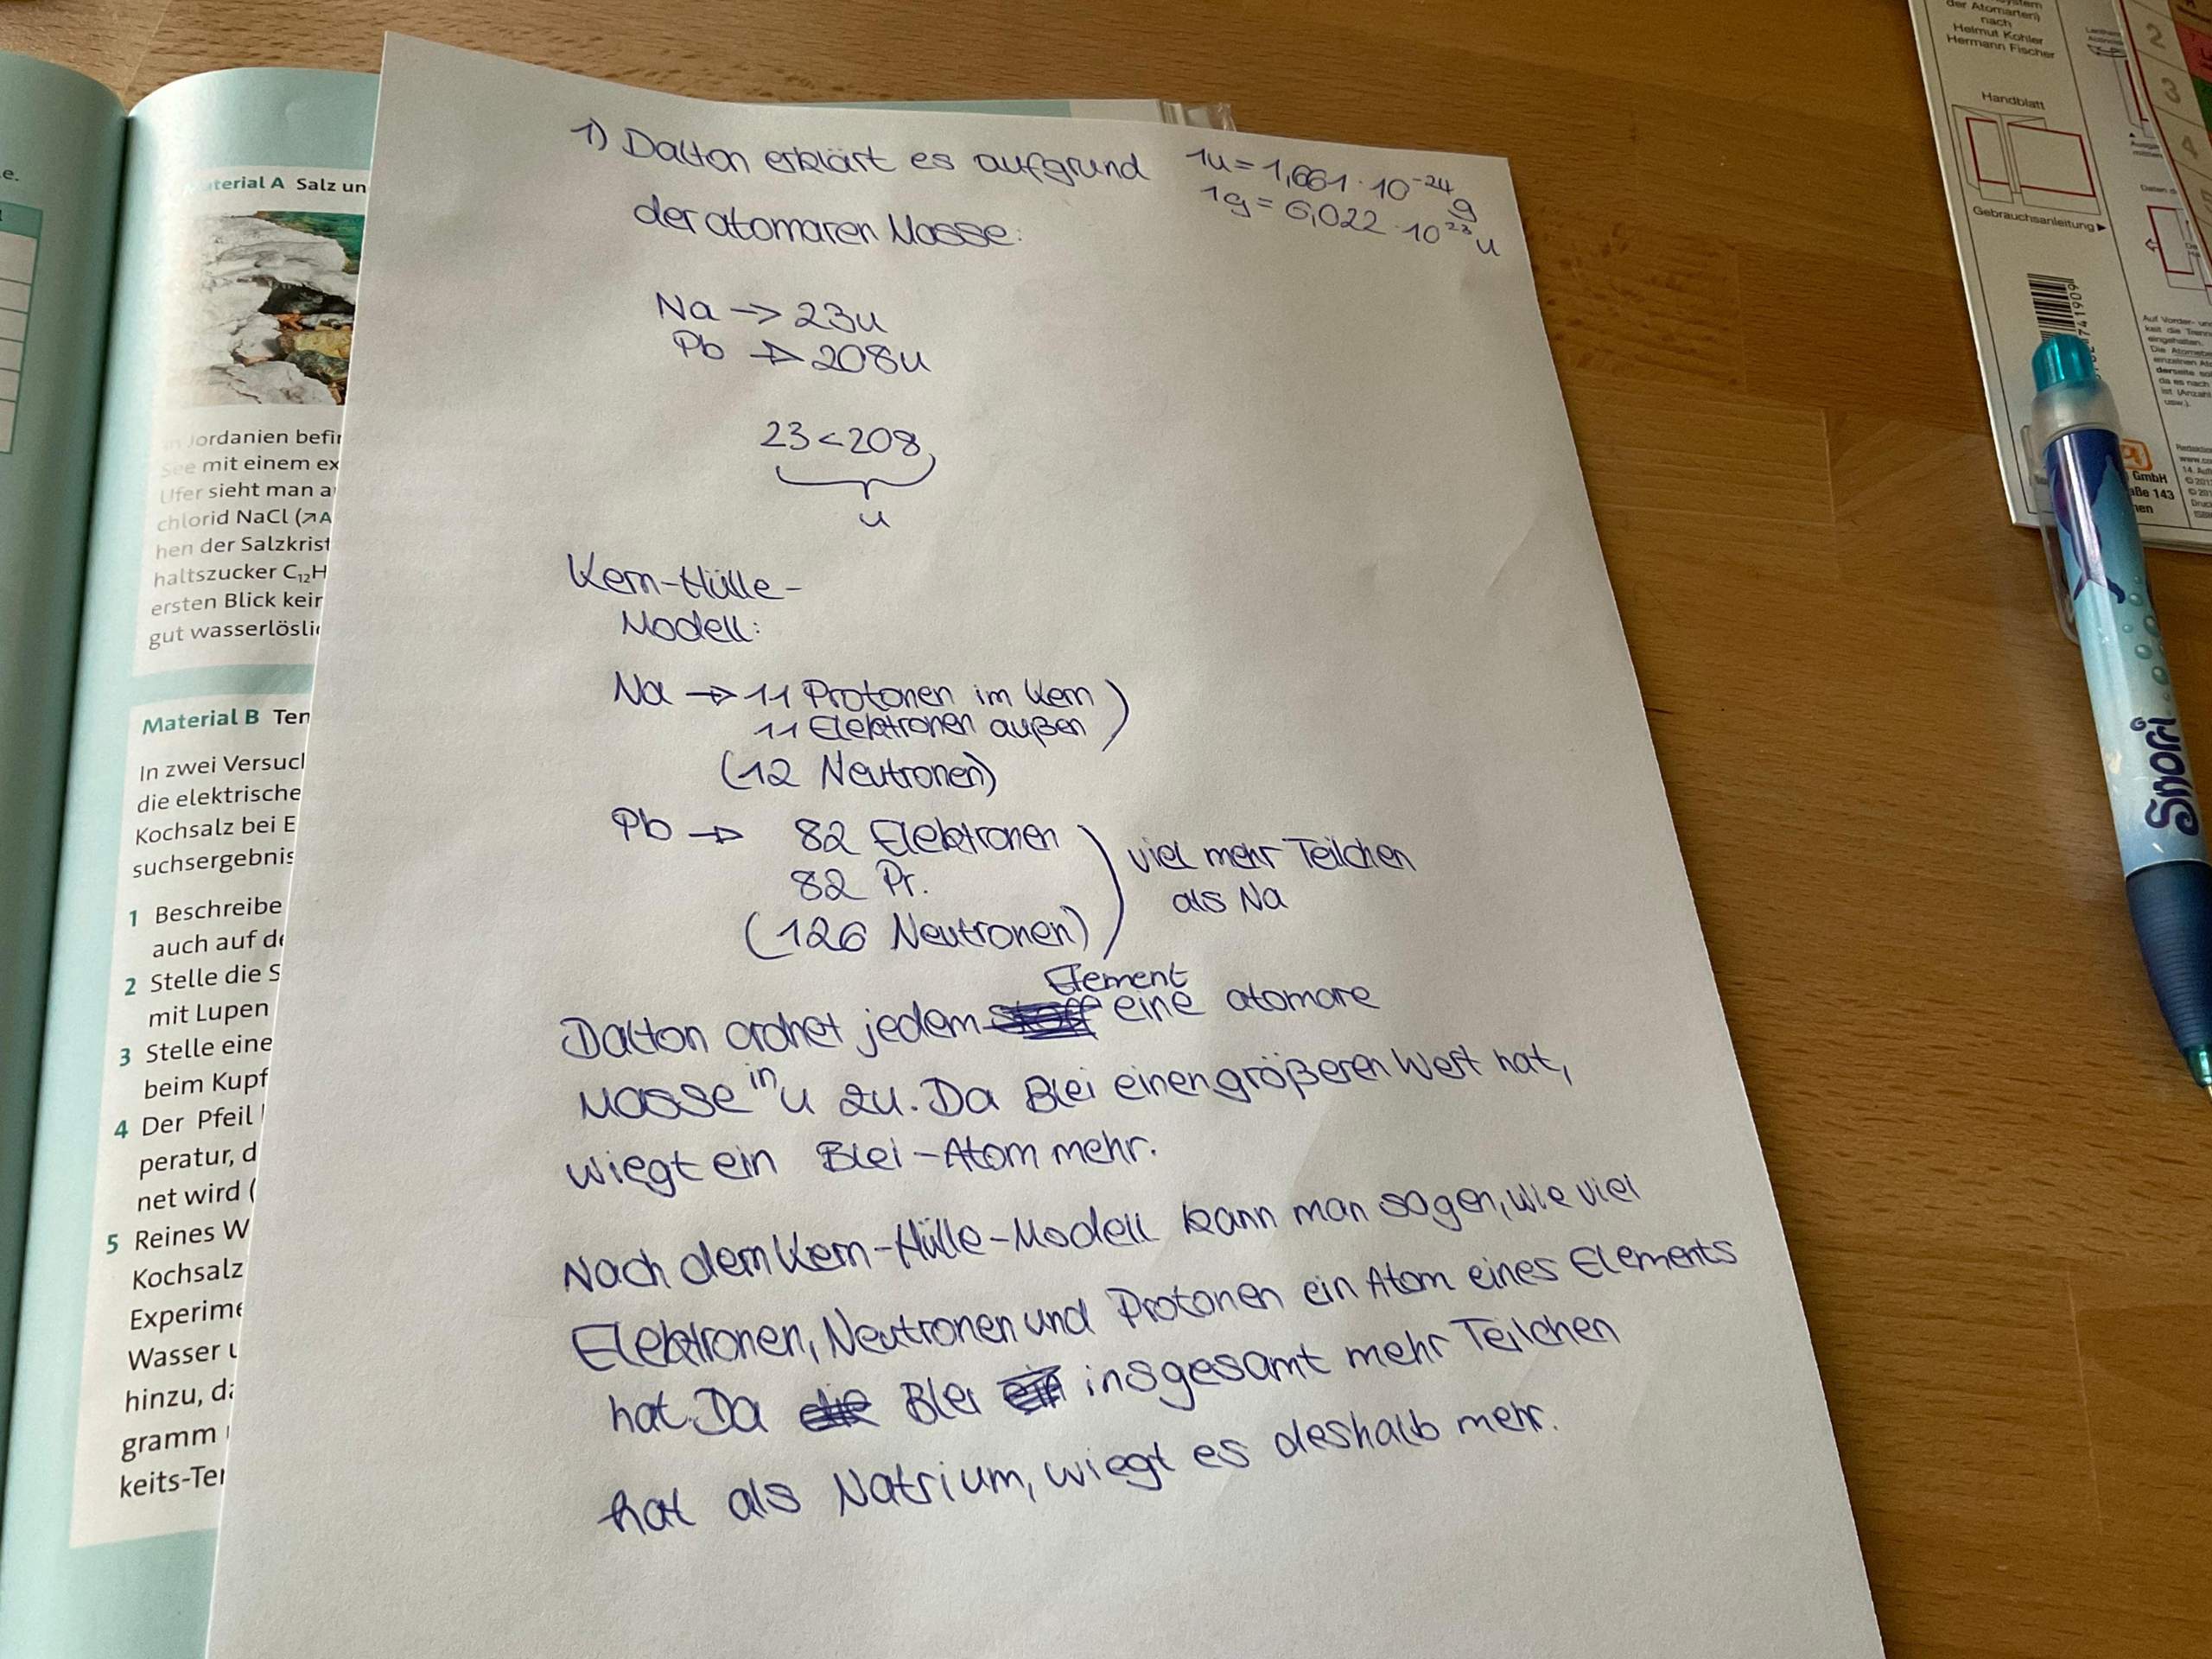 1) Dalton erklärt es aufgrund
der atomaren Masse:
1u = 1,661 · 10⁻²⁴ g
1g = 6,022 · 10²³ u
Na → 23u
Pb → 208u
23 < 208
u
Kern-Hülle-
Modell:
Na → 11 Protonen im Kern
11 Elektronen außen
(12 Neutronen)
Pb → 82 Elektronen
82 Pr.
(126 Neutronen)
viel mehr Teilchen
als Na
Dalton ordnet jedem Element eine atomare
Masse in u zu. Da Blei einen größeren Wert hat,
wiegt ein Blei-Atom mehr.
Nach dem Kern-Hülle-Modell kann man sagen, wie viel
Elektronen, Neutronen und Protonen ein Atom eines Elements
hat. Da Blei insgesamt mehr Teilchen
hat als Natrium, wiegt es deshalb mehr.
e.
terial A Salz un
Jordanien befin
See mit einem ex
Ufer sieht man a
chlorid NaCl (↗A
hen der Salzkrist
haltszucker C₁₂H
ersten Blick kein
gut wasserlöslic
Material B Ten
In zwei Versucl
die elektrische
Kochsalz bei E
suchsergebnis
1 Beschreibe
auch auf de
2 Stelle die S
mit Lupen
3 Stelle eine
beim Kupf
4 Der Pfeil
peratur, d
net wird (
5 Reines W
Kochsalz
Experime
Wasser u
hinzu, da
gramm
keits-Ter
der Atomarten)
nach
Helmut Kohler
Hermann Fischer
Handblatt
Gebrauchsanleitung ▶
2
3
4
GmbH
aße 143
Snorri